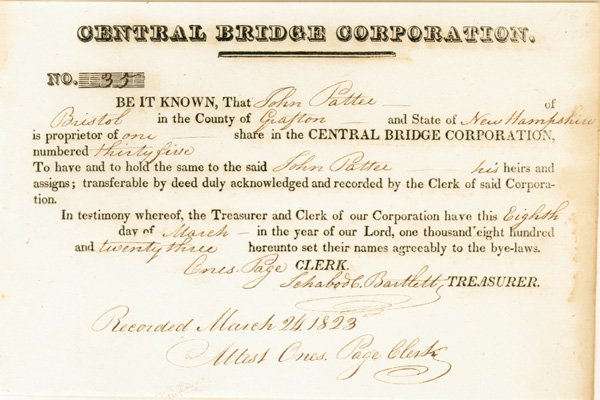 CENTRAL BRIDGE CORPORATION.
NO. 35
BE IT KNOWN, That John Pattee of
Bristol in the County of Grafton and State of New Hampshire
is proprietor of one share in the CENTRAL BRIDGE CORPORATION,
numbered thirty five
To have and to hold the same to the said John Pattee his heirs and
assigns; transferable by deed duly acknowledged and recorded by the Clerk of said Corpora-
tion.
In testimony whereof, the Treasurer and Clerk of our Corporation have this Eighth
day of March in the year of our Lord, one thousand eight hundred
and twenty three hereunto set their names agreeably to the bye-laws.
Ones. Page CLERK.
Ichabod C. Bartlett, TREASURER.
Recorded March 24, 1823
Attest Ones. Page Clerk